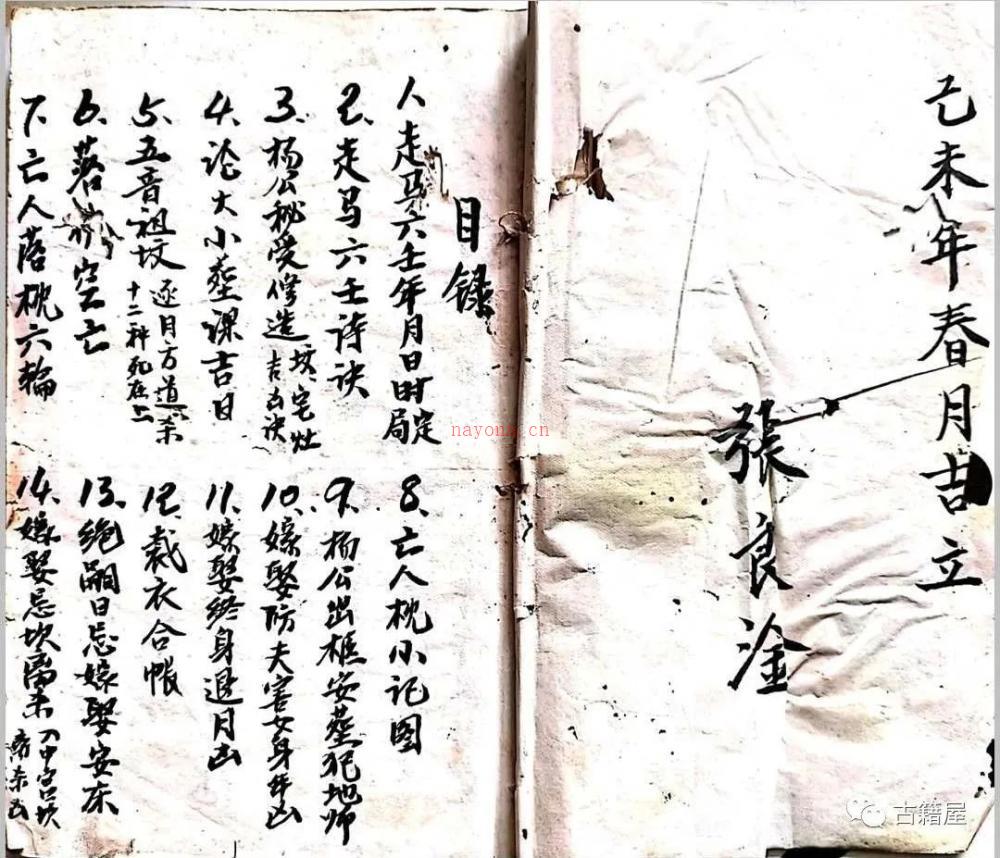 己未年春月吉立
張良淦
目録
1 走马六壬年月日时定局
2、走马六壬诗诀
3、杨公秘受修造坟宅灶吉凶诀
4、论大小葬课吉日
5、五音祖坟逐月方道杀
十二种死在上
6、落
空亡
7、亡人落枕六輪
8、亡人枕小记图
9、杨公出樵安葬犯地师
10、嫁娶防夫害女身年凶
11、嫁娶终身退月凶
12、裁衣合帳
13、绝嗣日忌嫁娶安床
14、嫁娶忌坎离
入中宫坎
nayona.cn
古籍屋